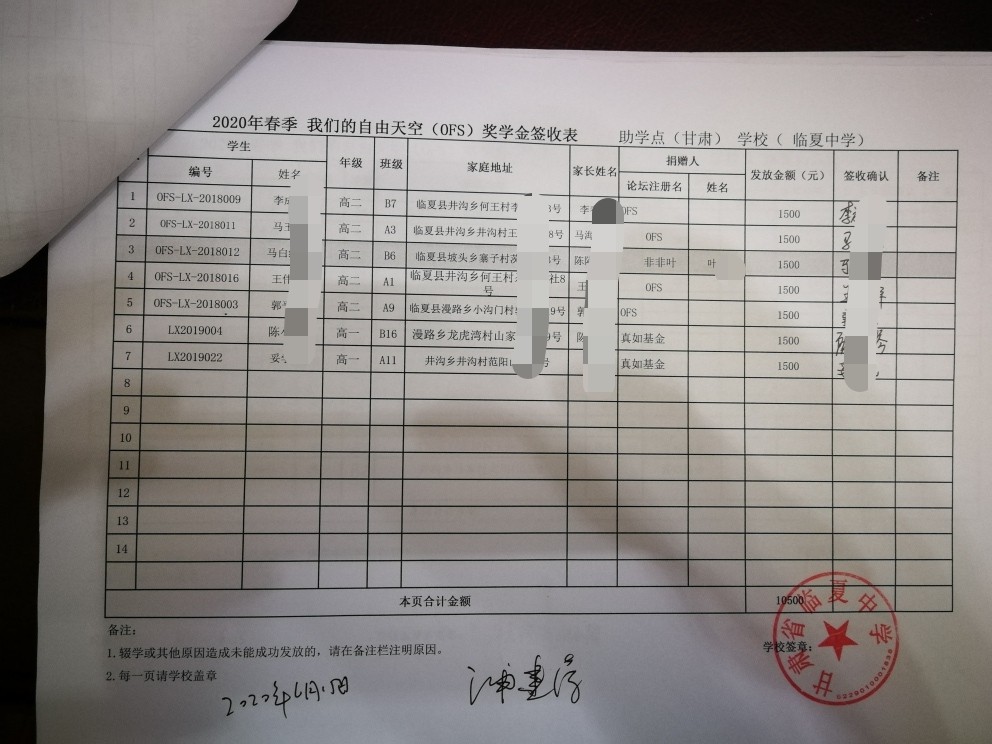 2020年春季 我们的自由天空（OFS）奖学金签收表 助学点（甘肃） 学校（ 临夏中学）
学生 年级 班级 家庭地址 家长姓名 捐赠人 发放金额（元） 签收确认 备注
编号 姓名 论坛注册名 姓名
1 OFS-LX-2018009 李 高二 B7 临夏县井沟乡何王村李 号 李 OFS 1500
2 OFS-LX-2018011 马 高二 A3 临夏县井沟乡井沟村王 8号 马 OFS 1500
3 OFS-LX-2018012 马白 高二 B6 临夏县坡头乡寨子村 号 陈 非非叶 叶 1500
4 OFS-LX-2018016 王 高二 A1 临夏县井沟乡何王村 社8号 王 OFS 1500
5 OFS-LX-2018003 郭 高二 A9 临夏县漫路乡小沟门村 9号 郭 OFS 1500
6 LX2019004 陈 高一 B16 漫路乡龙虎湾村山家 号 陈 真如基金 1500
7 LX2019022 妥 高一 A11 井沟乡井沟村范阳 号 真如基金 1500
8
9
10
11
12
13
14
本页合计金额 10500
备注：
1.辍学或其他原因造成未能成功发放的，请在备注栏注明原因。
学校签章：
2.每一页请学校盖章
甘肃省临夏中学
2020年6月 日